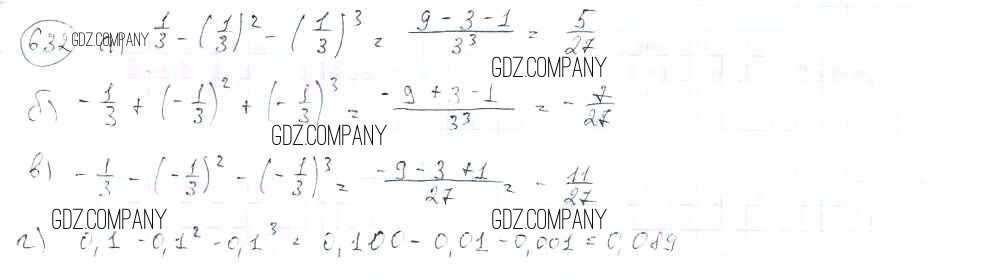 632 GDZ.COMPANY 1/3 - (1/3)² - (1/3)³ = (9 - 3 - 1)/3³ = 5/27
GDZ.COMPANY
б) - 1/3 + (- 1/3)² + (- 1/3)³ = (-9 + 3 - 1)/3³ = - 7/27
GDZ.COMPANY
в) - 1/3 - (- 1/3)² - (- 1/3)³ = (-9 - 3 + 1)/27 = - 11/27
GDZ.COMPANY GDZ.COMPANY
г) 0,1 - 0,1² - 0,1³ = 0,100 - 0,01 - 0,001 = 0,089